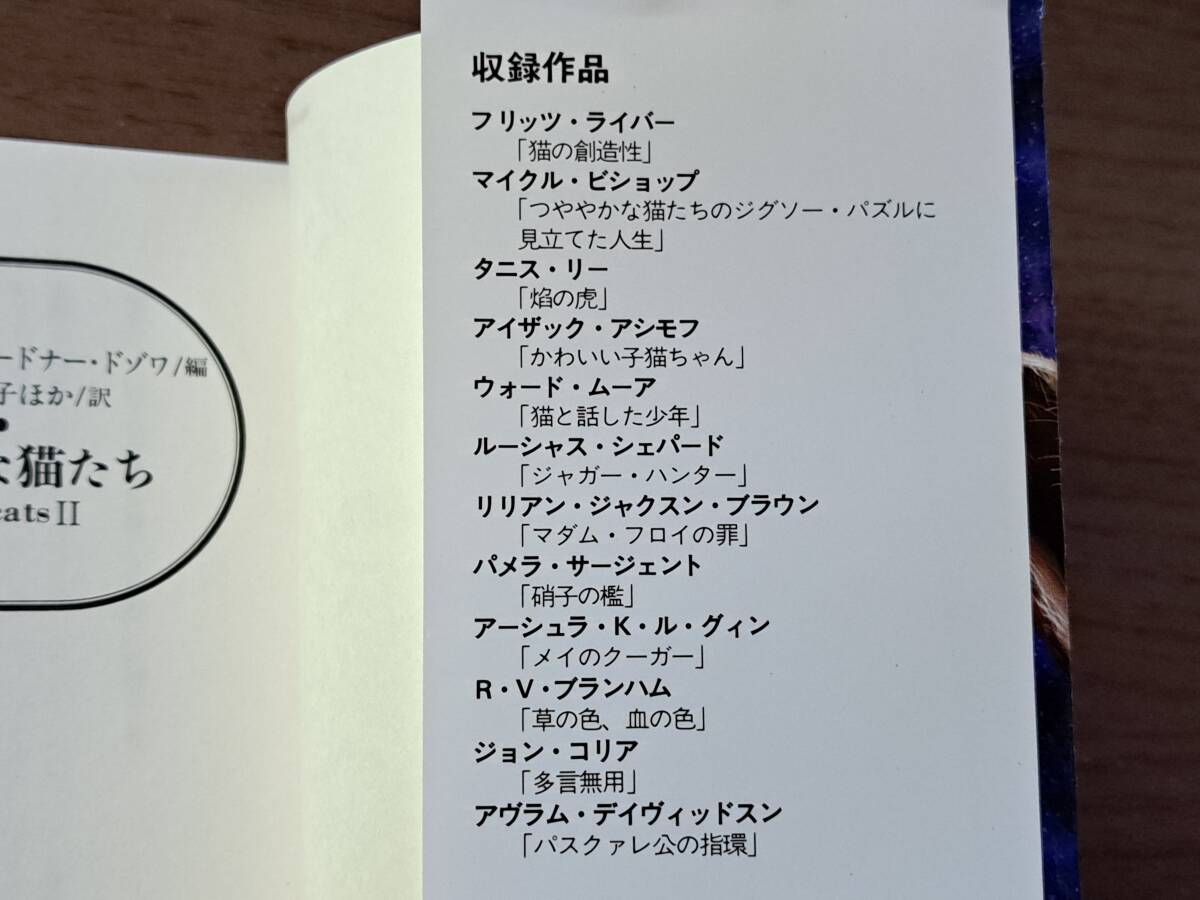 収録作品
フリッツ・ライバー
「猫の創造性」
マイクル・ビショップ
「つややかな猫たちのジグソー・パズルに
見立てた人生」
タニス・リー
「焔の虎」
アイザック・アシモフ
「かわいい子猫ちゃん」
ウォード・ムーア
「猫と話した少年」
ルーシャス・シェパード
「ジャガー・ハンター」
リリアン・ジャクスン・ブラウン
「マダム・フロイの罪」
パメラ・サージェント
「硝子の檻」
アーシュラ・K・ル・グィン
「メイのクーガー」
R・V・ブランハム
「草の色、血の色」
ジョン・コリア
「多言無用」
アヴラム・デイヴィッドスン
「パスクァレ公の指環」
ードナー・ドゾワ/編
子ほか/訳
な猫たち
cats II